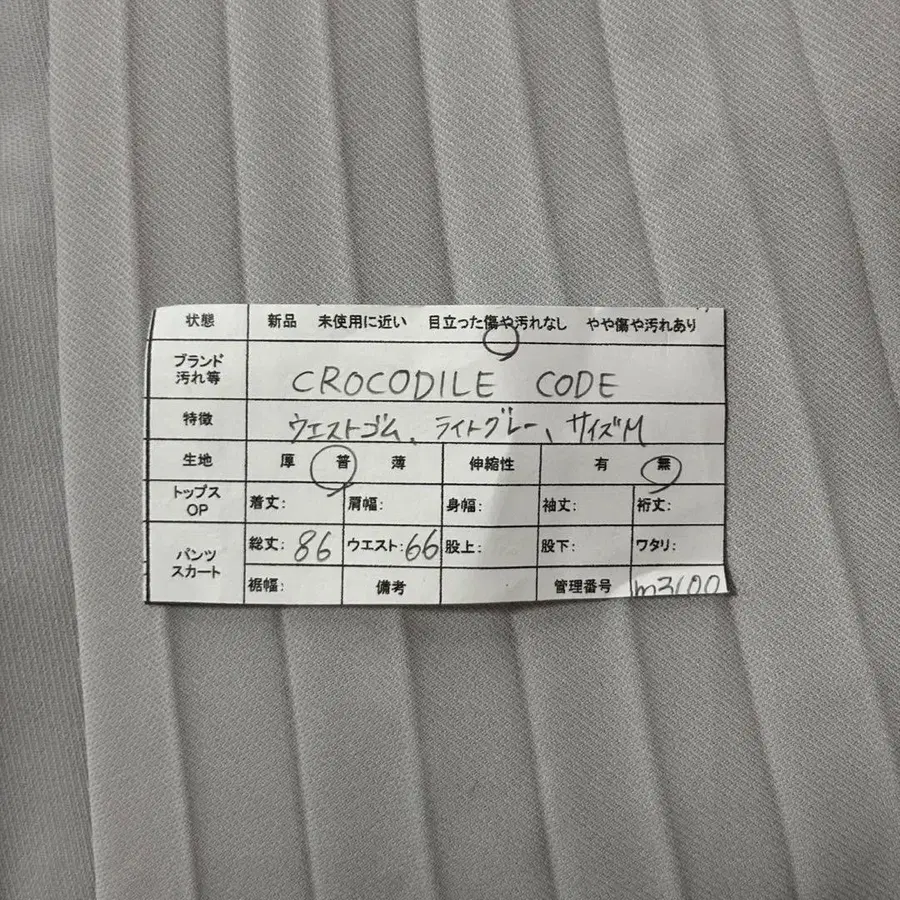 状態 新品 未使用に近い 目立った傷や汚れなし やや傷や汚れあり
ブランド
汚れ等 CROCODILE CODE
特徴 ウエストゴム、ライトグレー、サイズM
生地 厚 普 薄 伸縮性 有 無
トップス
OP 着丈: 肩幅: 身幅: 袖丈: 裄丈:
パンツ
スカート 総丈: 86 ウエスト: 66 股上: 股下: ワタリ:
裾幅: 備考 管理番号 m3100